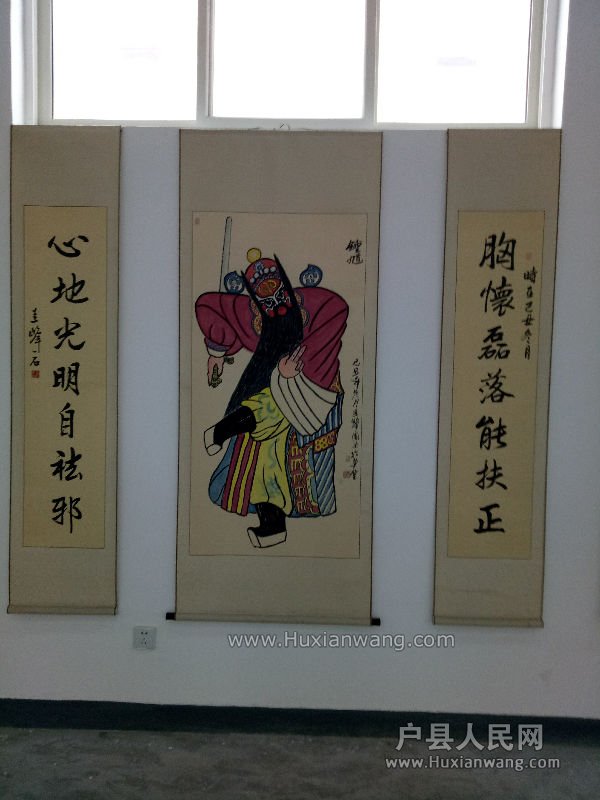 胸怀磊落能扶正
時在己丑冬月
鍾馗
心地光明自祛邪
圭峰石
www.Huxianwang.com
户县人民网
www.Huxianwang.com